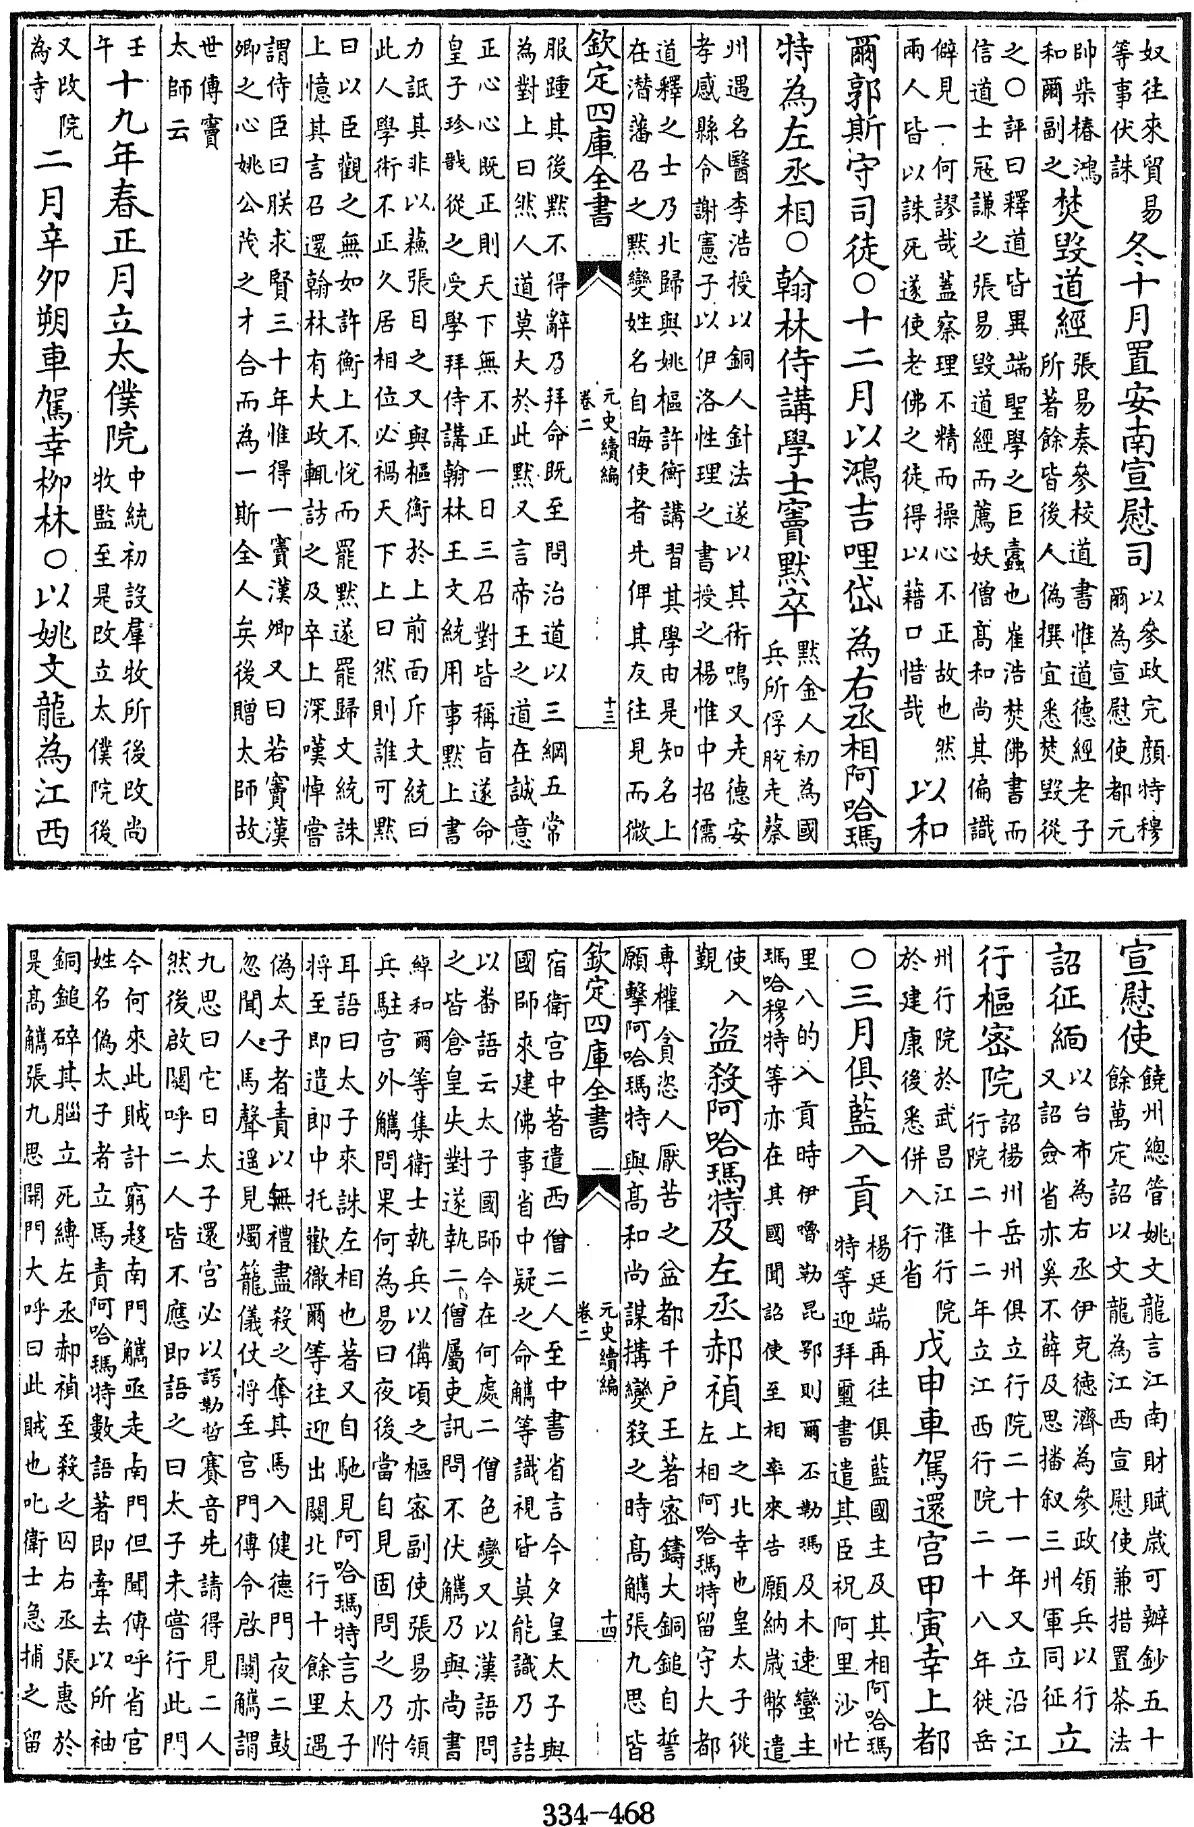 奴往來貿易等事伏誅冬十月置安南宣慰司以參政完顏特穆爾為宣慰使都元
帥柴椿鴻和爾副之焚毀道經張易奏參校道書惟道德經老子所著餘皆後人偽撰宜悉焚毀從
之○評曰釋道皆異端聖學之巨蠹也崔浩焚佛書而
信道士冦謙之張易毀道經而薦妖僧髙和尚其偏識
僻見一何謬哉蓋察理不精而操心不正故也然兩人皆以誅死遂使老佛之徒得以藉口惜哉以和
爾郭斯守司徒○十二月以鴻吉哩岱為右丞相阿哈瑪
特為左丞相○翰林侍講學士竇默卒默金人初為國兵所俘脫走蔡
州遇名醫李浩授以銅人針法遂以其術鳴又走德安
孝感縣令謝憲子以伊洛性理之書授之楊惟中招儒
道釋之士乃北歸與姚樞許衡講習其學由是知名上
在潛藩召之默變姓名自晦使者先俾其友往見而微
欽定四庫全書 元史續編 卷二 十三
服踵其後默不得辭乃拜命既至問治道以三綱五常
為對上曰然人道莫大於此默又言帝王之道在誠意
正心心既正則天下無不正一日三召對皆稱旨遂命
皇子珍戩從之受學拜侍講翰林王文統用事默上書
力詆其非以蘓張目之又與樞衡於上前面斥文統曰
此人學術不正久居相位必禍天下上曰然則誰可默
曰以臣觀之無如許衡上不悅而罷默遂罷歸文統誅
上憶其言召還翰林有大政輒訪之及卒上深嘆悼嘗
謂侍臣曰朕求賢三十年惟得一竇漢卿又曰若竇漢
卿之心姚公茂之才合而為一斯全人矣後贈太師故
世傳竇太師云
壬午十九年春正月立太僕院中統初設羣牧所後改尚牧監至是改立太僕院後
又改院為寺二月辛卯朔車駕幸柳林○以姚文龍為江西
宣慰使饒州總管姚文龍言江南財賦歳可辦鈔五十餘萬定詔以文龍為江西宣慰使兼措置茶法
詔征緬以台布為右丞伊克德濟為參政領兵以行又詔僉省亦奚不薛及思播叙三州軍同征立
行樞密院詔楊州岳州俱立行院二十一年又立沿江行院二十二年立江西行院二十八年徙岳
州行院於武昌江淮行院於建康後悉併入行省戊申車駕還宮甲寅幸上都
○三月俱藍入貢楊廷端再往俱藍國主及其相阿哈瑪特等迎拜璽書遣其臣祝阿里沙忙
里八的入貢時伊嚕勒昆鄂則爾丕勒瑪及木速蠻主
瑪哈穆特等亦在其國聞詔使至相率來告願納歳幣遣
使入覲盜殺阿哈瑪特及左丞郝禎上之北幸也皇太子從左相阿哈瑪特留守大都
專權貪恣人厭苦之益都千户王著密鑄大銅鎚自誓
願擊阿哈瑪特與髙和尚謀搆變殺之時髙觿張九思皆
欽定四庫全書 元史續編 卷二 十四
宿衛宮中著遣西僧二人至中書省言今夕皇太子與
國師來建佛事省中疑之命觿等識視皆莫能識乃詰
以畨語云太子國師今在何處二僧色變又以漢語問
之皆倉皇失對遂執二僧屬吏訊問不伏觿乃與尚書
綽和爾等集衛士執兵以備頃之樞密副使張易亦領
兵駐宮外觿問果何為易曰夜後當自見固問之乃附
耳語曰太子來誅左相也著又自馳見阿哈瑪特言太子
將至即遣郎中托歡徹爾等往迎出關北行十餘里遇
偽太子者責以無禮盡殺之奪其馬入健德門夜二鼓
忽聞人馬聲遥見燭籠儀仗將至宮門傳令啟關觿謂
九思曰它日太子還宮必以諤勒哲賽音先請得見二人
然後啟關呼二人皆不應即語之曰太子未嘗行此門
今何來此賊計窮趍南門觿亟走南門但聞傳呼省官
姓名偽太子者立馬責阿哈瑪特數語著即牽去以所袖
銅鎚碎其腦立死縳左丞郝禎至殺之囚右丞張惠於
是髙觿張九思開門大呼曰此賊也叱衛士急捕之留
334-468